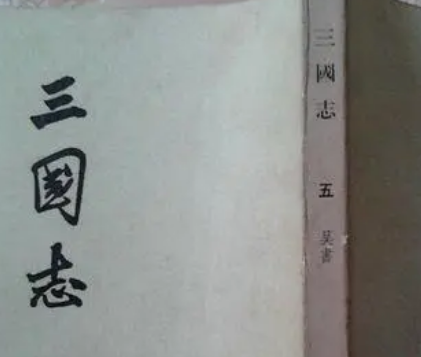 三國志
三國志
五
吴書